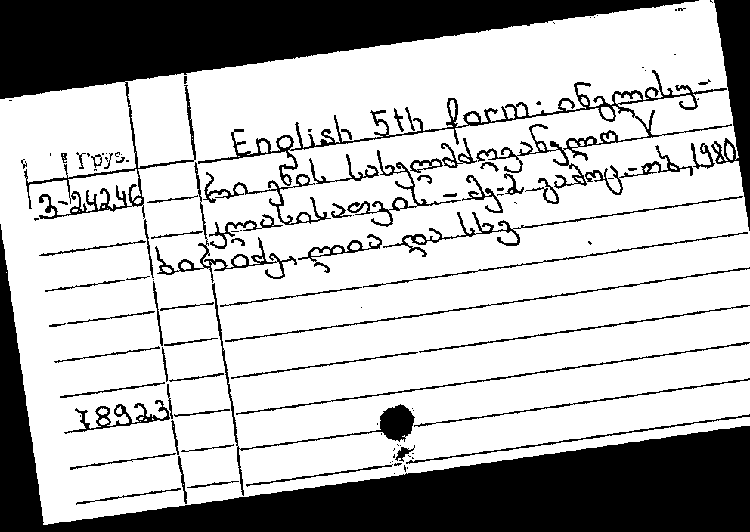 English 5th form: ინგლისუ-
Груз. რი ენის სახელმძღვანელო V
3-24246 კლასისათვის. - მე-2 გამოც.-თბ.,1980
ლია და სხვ
78923